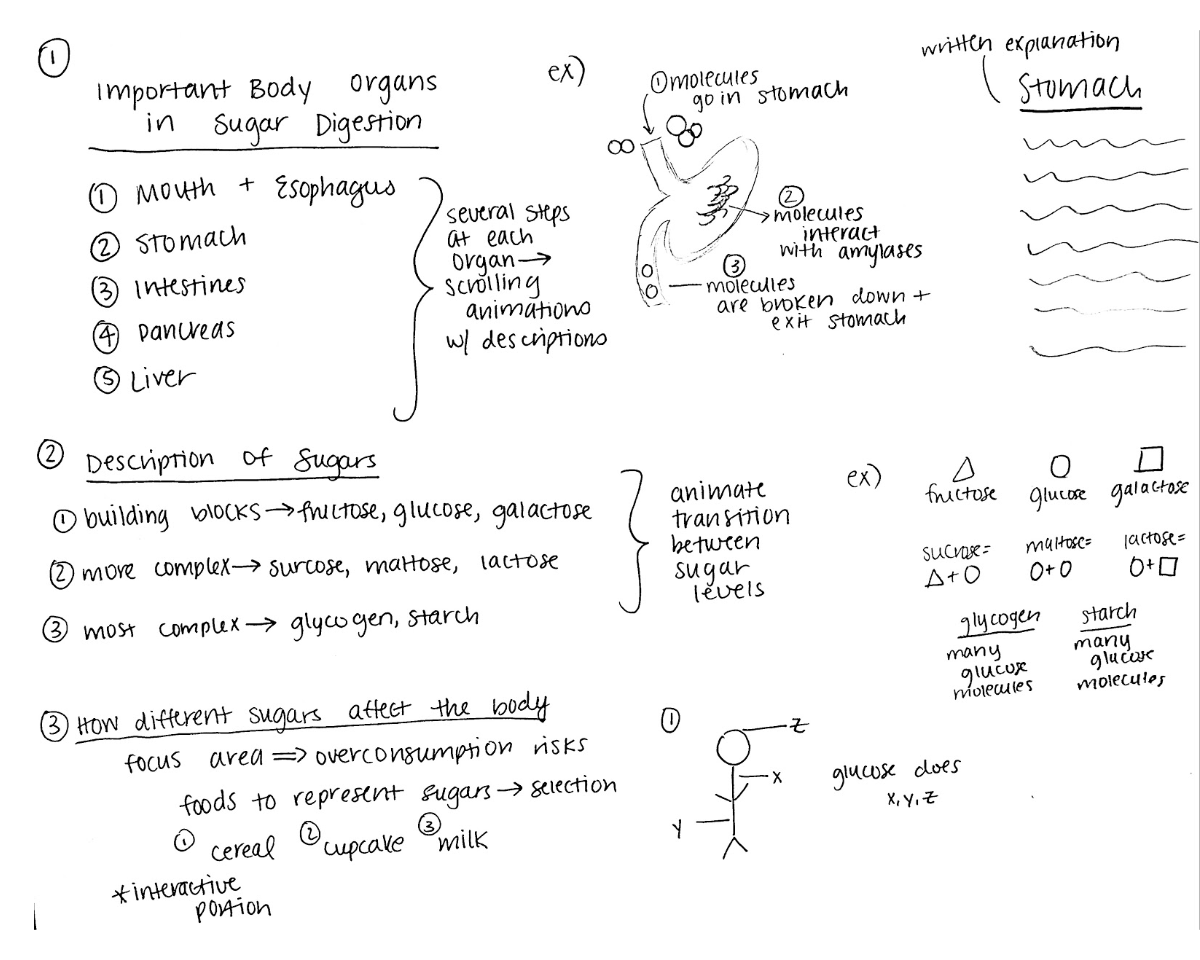 ①
Important Body Organs
in Sugar Digestion
① Mouth + Esophagus
② Stomach
③ Intestines
④ Pancreas
⑤ Liver
several steps
at each
organ →
scrolling
animations
w/ descriptions
ex)
① molecules
go in stomach
② molecules
interact
with amylases
③ molecules
are broken down +
exit stomach
written explanation
Stomach
② Description of Sugars
① building blocks → fructose, glucose, galactose
② more complex → surcose, maltose, lactose
③ most complex → glycogen, starch
animate
transition
between
sugar
levels
ex)
△ ○ □
fructose glucose galactose
sucrose= maltose= lactose=
△+○ ○+○ ○+□
glycogen starch
many many
glucose glucose
molecules molecules
③ How different sugars affect the body
focus area ⇒ overconsumption risks
foods to represent sugars → selection
① cereal ② cupcake ③ milk
*interactive
portion
①
z
x
y
glucose does
x, y, z